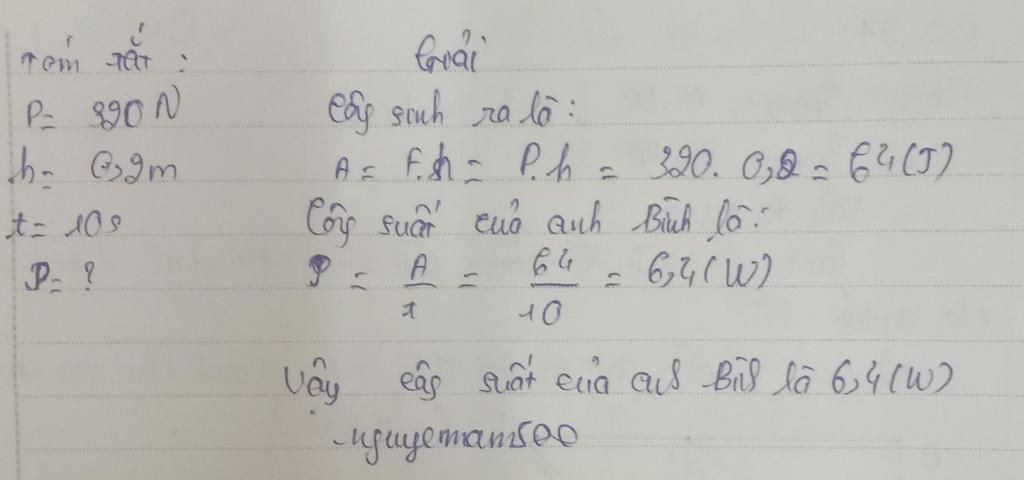 Tóm tắt :
Giải
P = 320N
Công sinh ra là :
h = 0,2m
A = F.h = P.h = 320. 0,2 = 64 (J)
t = 10s
Công suất của anh Bình là :
P = ?
P = A/t = 64/10 = 6,4 (W)
Vậy công suất của anh Bình là 6,4 (W)
-nguyemam500